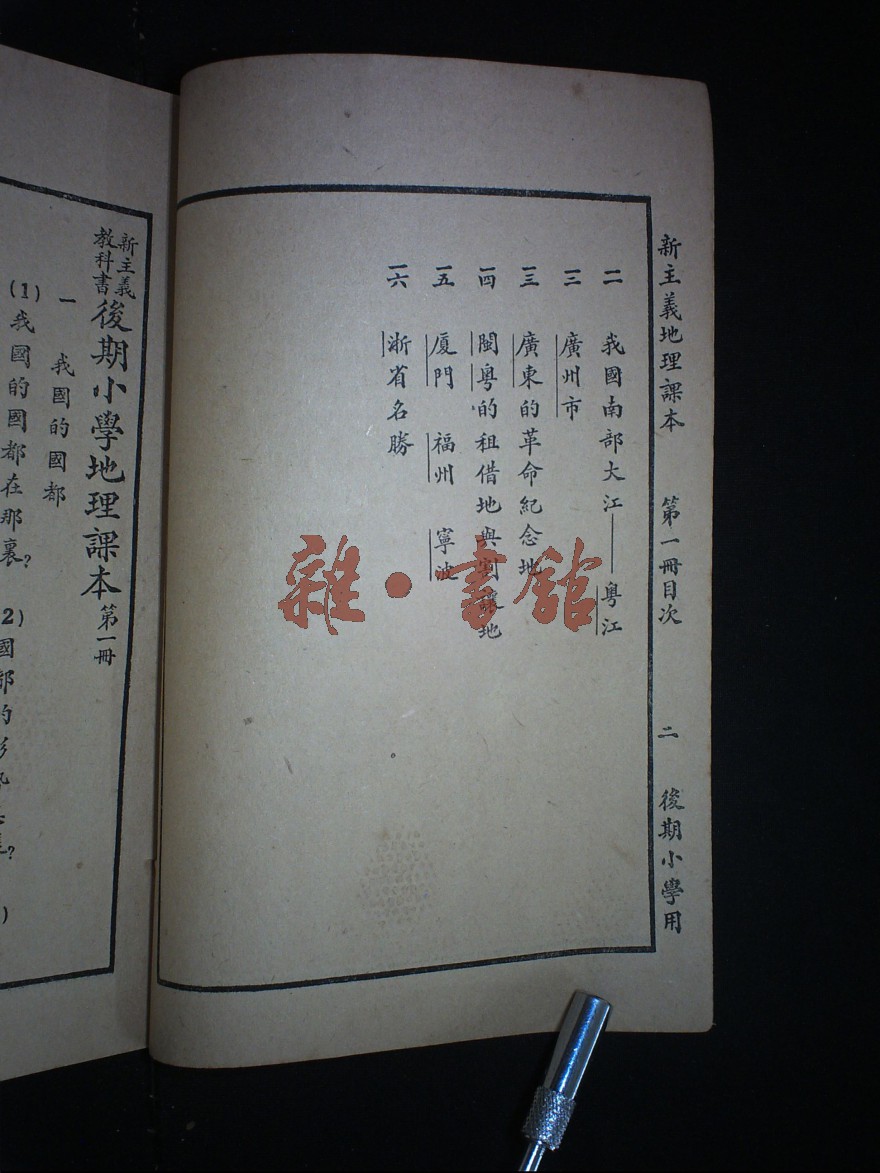 新主義地理課本 第一冊目次 二 後期小學用
一一 我國南部大江——粵江
一二 廣州市
一三 廣東的革命紀念地
一四 閩粵的租借地與割讓地
一五 廈門 福州 寧波
一六 浙省名勝
新主義教科書 後期小學地理課本 第一冊
一 我國的國都
(1)我國的國都在那裏?
雜·書館